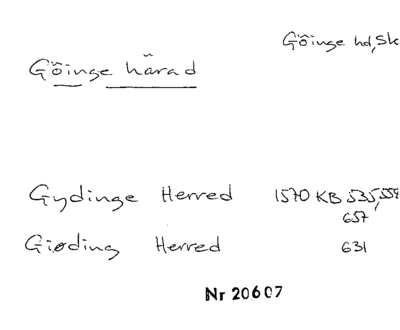 Göinge hd, Sk
Göinge härad
Gydinge Herred 1570 KB 535, 558
657
Giøding Herred 631
Nr 20607